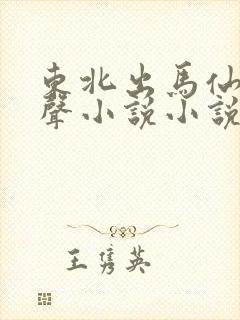 東北出馬仙
聲小說小說
王隽英